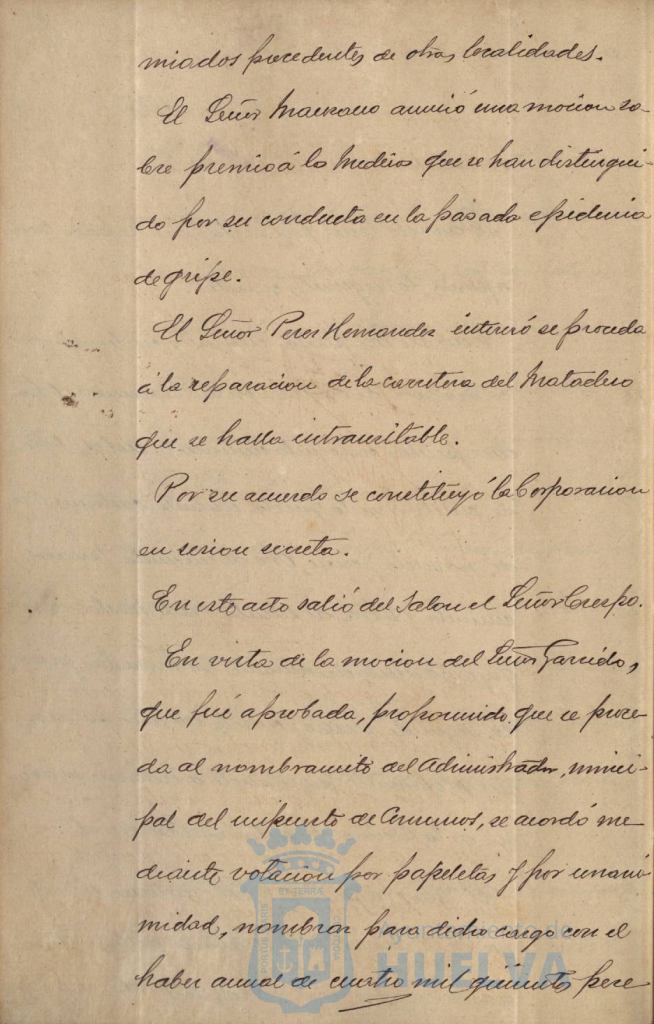 miados procedentes de otras localidades.
El Señor Manzano anunció una mocion so-
bre premio á lo Medicos que se han distingui-
do por su conducta en la pasada epidemia
de gripe.
El Señor Perez Hernandez interesó se proceda
á la reparacion de la carretera del Matadero
que se halla intransitable.
Por su acuerdo se constituyó la Corporacion
en sesion secreta.
En este acto salió del Salon el Señor Crespo.
En vista de la mocion del Señor Garrido,
que fué aprobada, proponiendo que se proce-
da al nombramiento del Administrador, munici-
pal del impuesto de Consumos, se acordó me
diante votacion por papeletas y por unani
midad, nombrar para dicho cargo con el
haber annal de cuatro mil quinientas pese
HUELVA